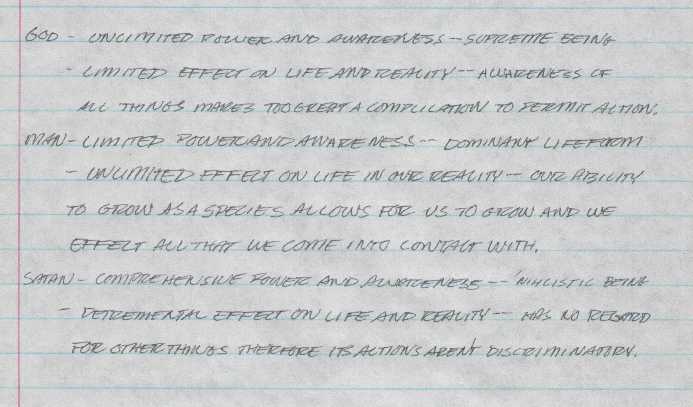 GOD - UNLIMITED POWER AND AWARENESS -- SUPREME BEING
- LIMITED EFFECT ON LIFE AND REALITY -- AWARENESS OF
ALL THINGS MAKES TOO GREAT A COMPLICATION TO PERMIT ACTION.
MAN - LIMITED POWER AND AWARENESS -- DOMINANT LIFEFORM
- UNLIMITED EFFECT ON LIFE IN OUR REALITY -- OUR ABILITY
TO GROW AS A SPECIES ALLOWS FOR US TO GROW AND WE
EFFECT ALL THAT WE COME INTO CONTACT WITH.
SATAN - COMPREHENSIVE POWER AND AWARENESS -- NIHLISTIC BEING
- DETREMENTAL EFFECT ON LIFE AND REALITY -- HAS NO REGARD
FOR OTHER THINGS THEREFORE ITS ACTIONS AREN'T DISCRIMINATORY.